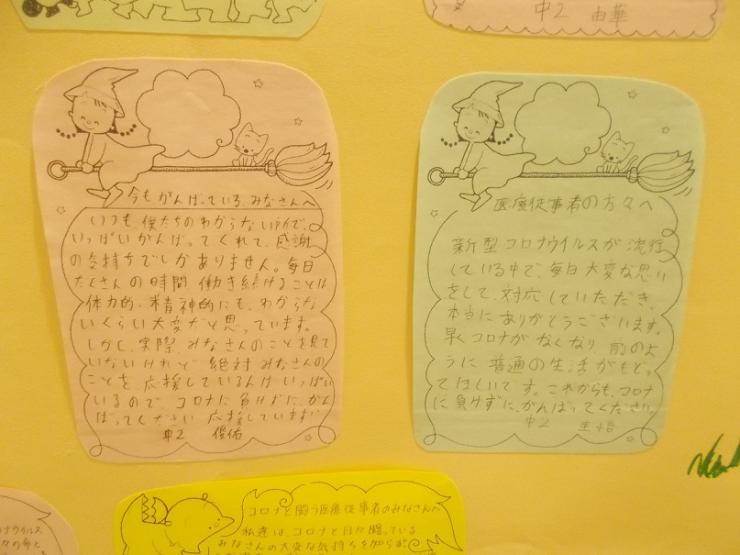 中2 由華
今もがんばっている、みなさんへ
いつも、僕たちのわからない所で、
いっぱいがんばってくれて、感謝
の気持ちでしかありません。毎日
たくさんの時間 働き続けることは
体力的、精神的にも、わからな
いくらい大変だと思っています。
しかし、実際、みなさんのことを見て
いないけれど、絶対みなさんの
ことを、応援している人はいっぱい
いるので、コロナに負けずに、がん
ばってください 応援しています
中2 俊佑
医療従事者の方々へ
新型コロナウイルスが流行
している中で、毎日大変な思い
をして、対応していただき、
本当にありがとうございます。
早くコロナがなくなり、前のよ
うに普通の生活がもどっ
てほしいです。これからも、コロナ
に負けずに、がんばってください。
中2
コロナと闘う医療従事者のみなさんへ
私達は、コロナと日々闘っている
みなさんの大変な気持ちを知らず
ナウイルス